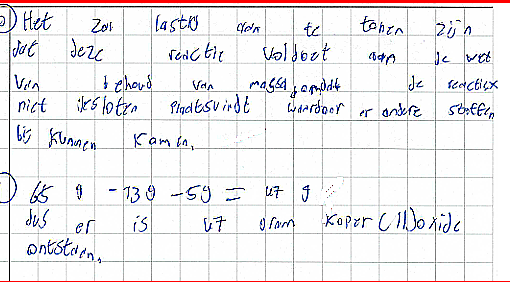 Het zal lastig aan te tonen zijn
dat deze reactie voldoet aan de wet
van behoud van massa omdat de reactie
niet gesloten plaatsvindt waardoor er andere stoffen
bij kunnen komen.
65 g - 13 g - 5 g = 47 g
dus er is 47 gram koper(II)oxide
ontstaan.